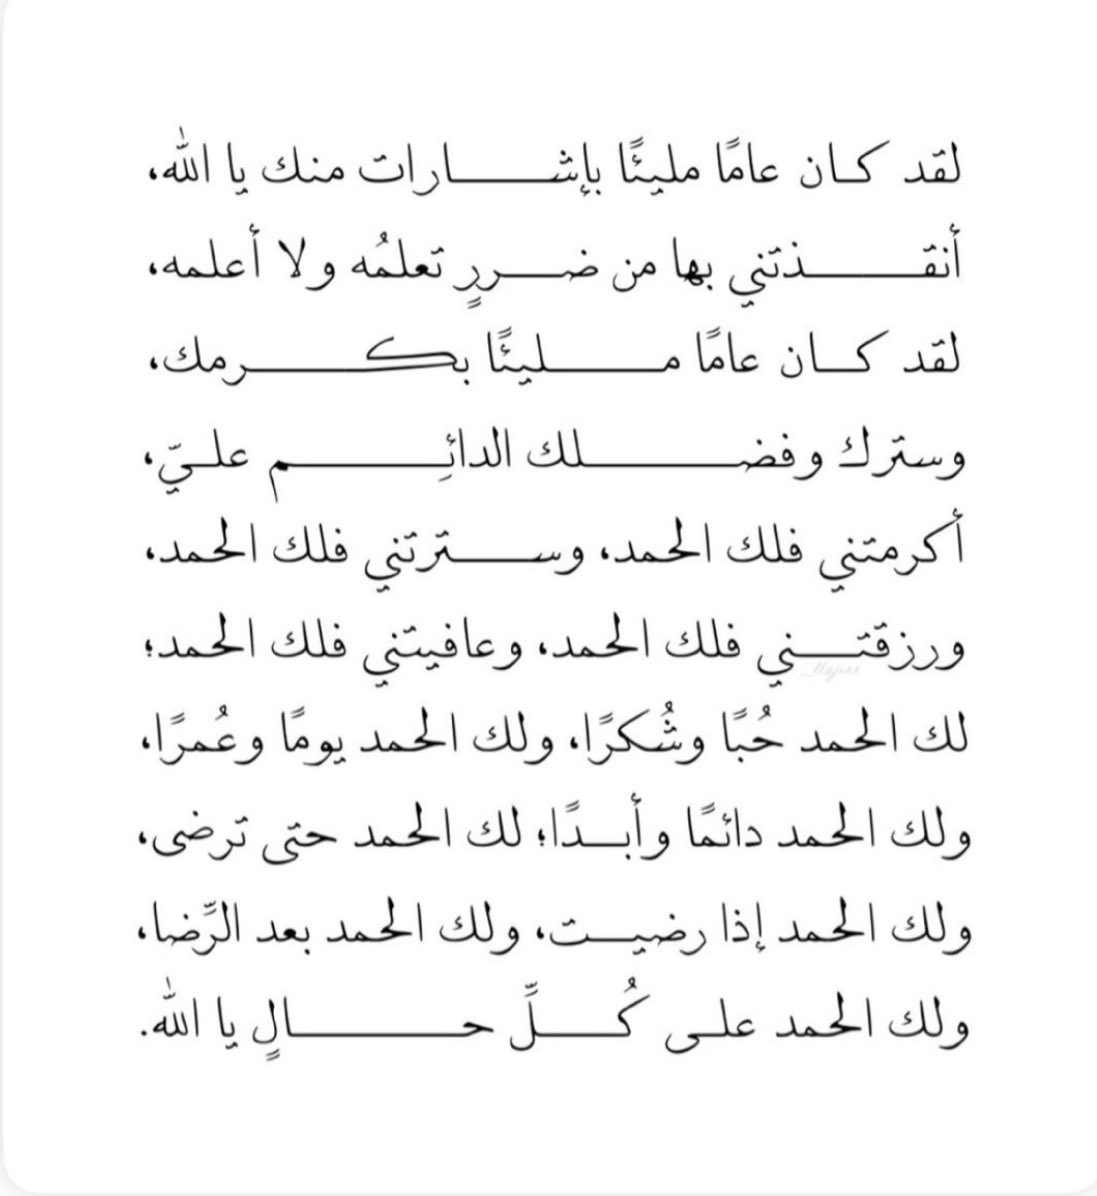 لقد كان عامًا مليئًا بإشـــارات منك يا الله،
أنقـــذتني بها من ضـــررٍ تعلمُه ولا أعلمه،
لقد كـان عامًا مـــليئًا بكـــرمك،
وسترك وفضـــلك الدائِـــم علـيّ،
أكرمتني فلك الحمد، وســـترتني فلك الحمد،
ورزقتـــني فلك الحمد، وعافيتني فلك الحمد؛
لك الحمد حُبًا وشُكرًا، ولك الحمد يومًا وعُمرًا،
ولك الحمد دائمًا وأبـــدًا؛ لك الحمد حتى ترضى،
ولك الحمد إذا رضيـــت، ولك الحمد بعد الرِّضا،
ولك الحمد علـى كُـــلِّ حـــالٍ يا الله.